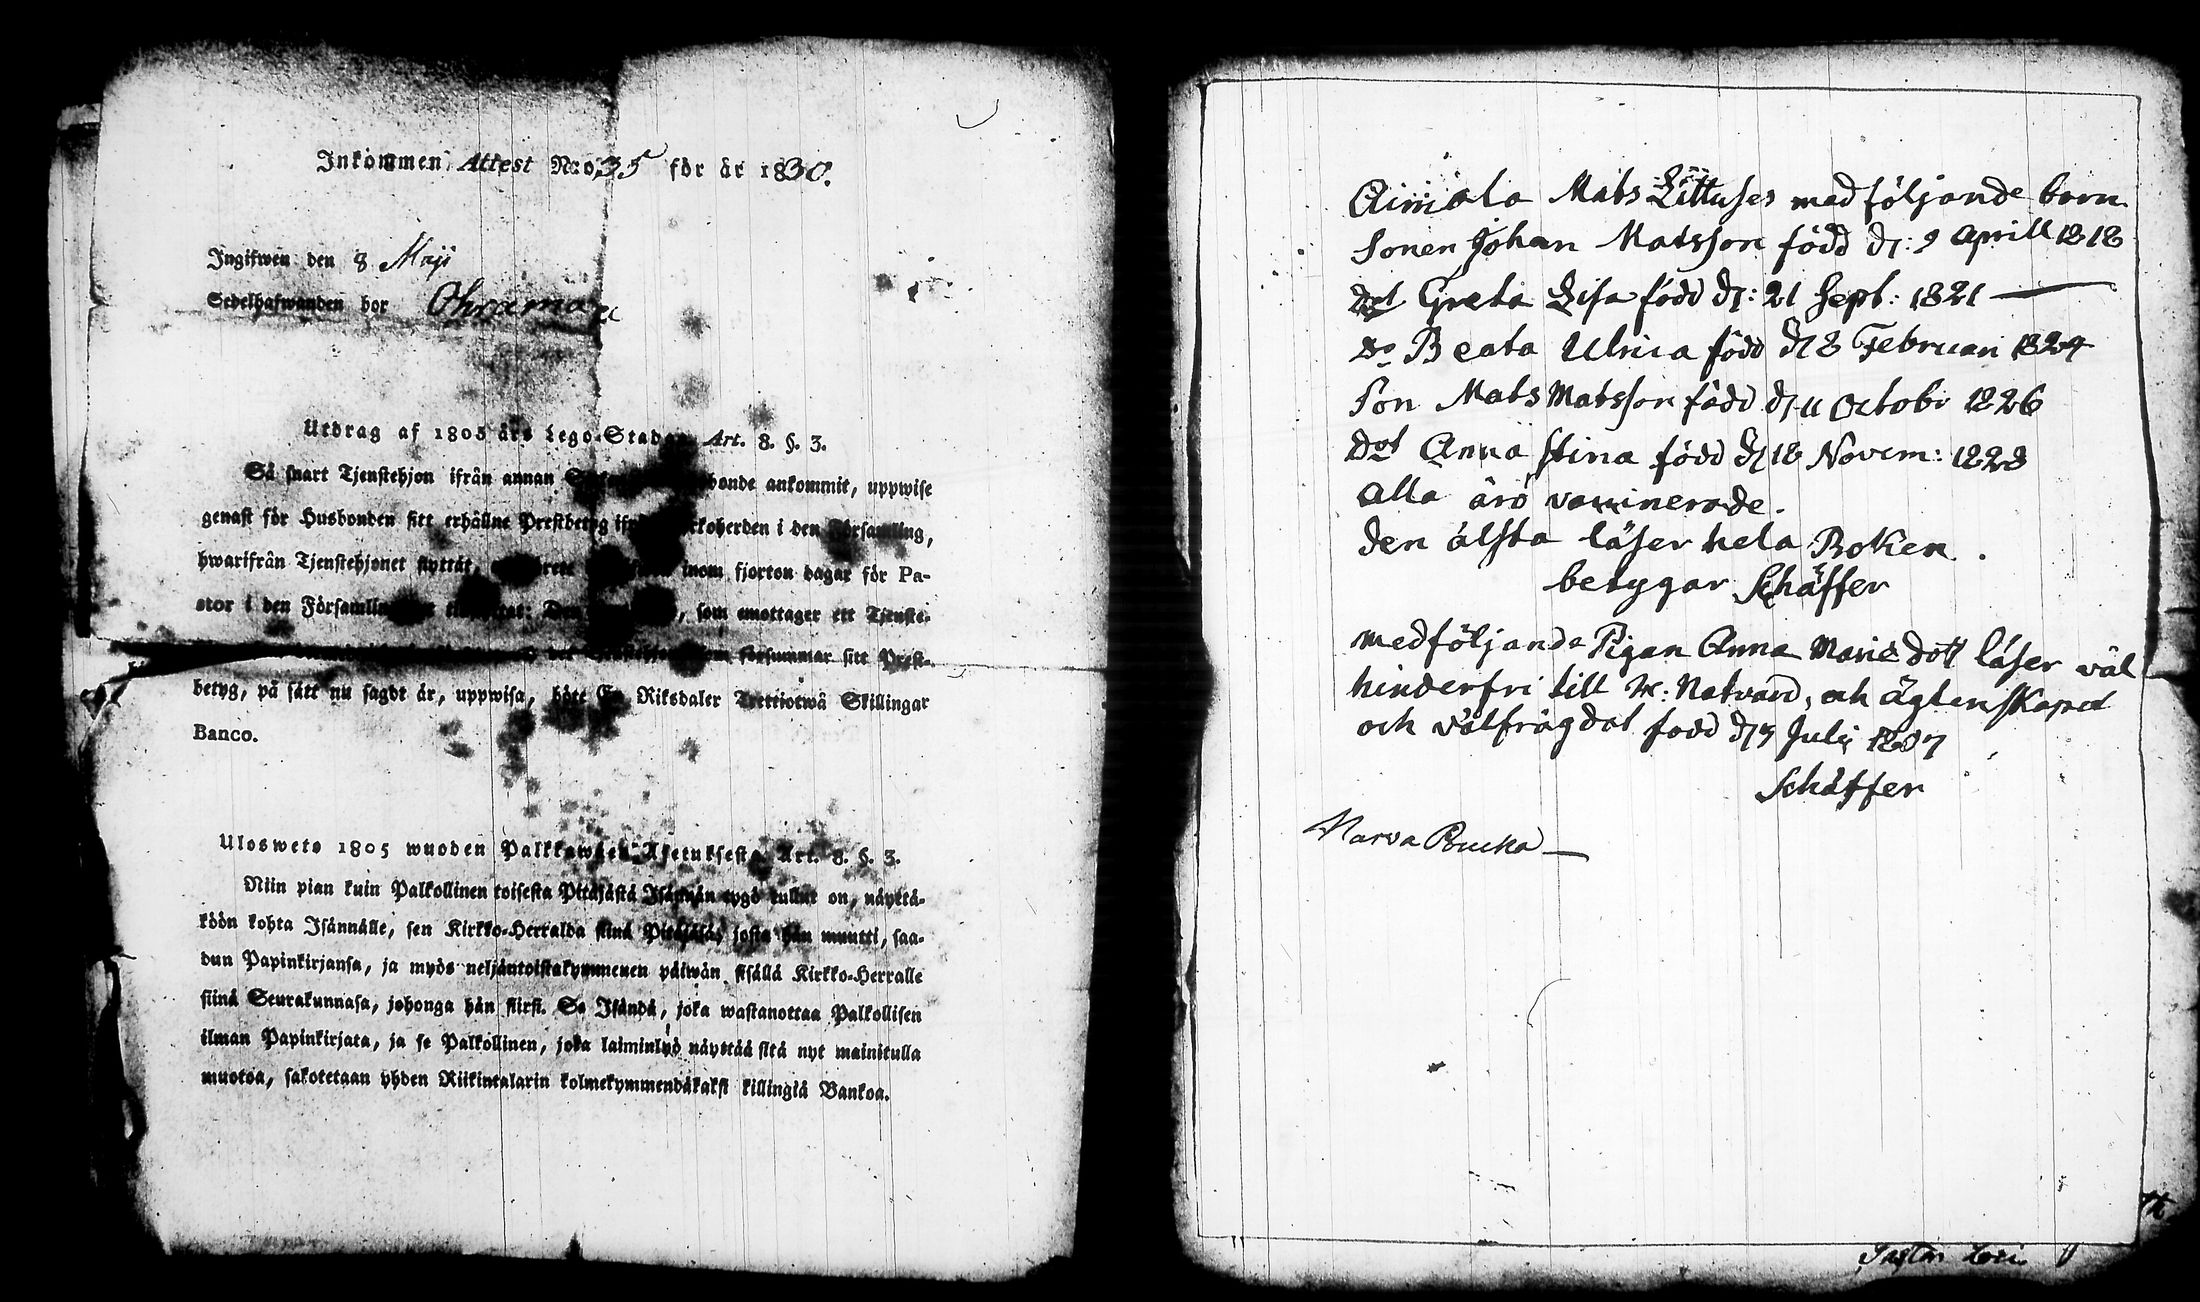 Inkommen Attest N:o 35 för år 1830.
Ingifwen den 8 Maji
Sedelhafwanden bor
Utdrag af 1805 års Lego-Stadga Art. 8. §. 3.
Så snart Tjenstehjon ifrån annan ankommit, uppwise
genast för Husbonden sitt erhållne Prestbetyg i den Församling,
hwarifrån Tjenstehjonet flyttat, inom fjorton dagar för Pa-
stor i den som emottager ett Tjenste-
försummar sitt Prest-
betyg, på sätt nu sagdt är, uppwisa, böte En Riksdaler Trettiotwå Skillingar
Banco.
Ulosweto 1805 wuoden Palkkawäen Asetuksesta. Art. 8. §. 3.
Niin pian kuin Palkollinen toisesta Pitäjästä Isännän tygö tullut on, näyttä-
köön kohta Isännälle, sen Kirkko-Herralda siinä Pitäjäsä, josta hän muutti, saa-
dun Papinkirjansa, ja myös neljäntoistakymmenen päiwän sisällä Kirkko-Herralle
siinä Seurakunnasa, johonga hän siirsi. Se Isändä, joka wastanottaa Palkollisen
ilman Papinkirjata, ja se Palkollinen, joka laiminlyö näyttää sitä nyt mainitulla
muotoa, sakotetaan yhden Riikintalarin kolmekymmendäkaksi killingiä Bankoa.
Mats medföljande barn
Sonen Johan Matsson född d: 9 Aprill 1818
dot Greta Lisa född d: 21 Sept: 1821
Do Beata Ulrica född d 8 Februari 1824
Son Mats Matsson född d 11 Octobr 1826
Dot Anna Stina född d 18 Novem: 1828
alla äro vaccinerade.
den älsta läser hela Boken.
betygar Schäffer
medföljande Pigan Anna dott läser väl
hinderfri till H: Natvard, och ägtenskapet
och välfrägdat född d Julij
Schäffer